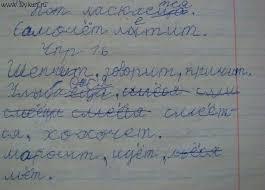 www.bykvu.ru
Кот ласкается.
Самолёт летит.
Упр 16
Шепчет, говорит, кричит.
Улыбается, смеёт
ся, хохочет.
моросит, идёт,
льёт.